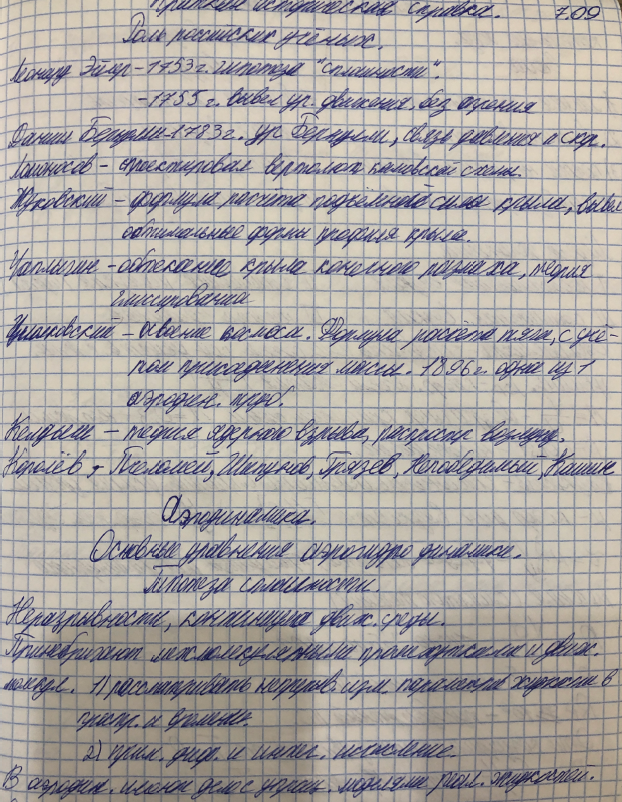 Краткая историческая справка. 7.09
Роль российских учёных.
Леонард Эйлер – 1753г. гипотеза "сплошности".
– 1755 г. вывел ур. движения без трения
Даниил Бернулли – 1783г. ур. Бернулли, связь давления и скр.
Ломоносов – спроектировал вертолёт соосной схемы.
Жуковский – формула расчёта подъёмной силы крыла, вывел
оптимальные формы профиля крыла.
Чаплыгин – обтекание крыла конечного размаха, теория
глиссирования
Циолковский – освоение космоса. Формула расчёта тяги, с учё-
том присоединения массы. 1896г. одна из 1
аэродин. труб.
Келдыш – теория ядерного взрыва, распростр. возмущ.
Королёв, Челомей, Шипунов, Грязев, Непобедимый,
Аэродинамика.
Основные уравнения аэрогидродинамики.
Гипотеза сплошности.
Неразрывности, континуума движ. среды.
Пренебрегают межмолекулярными промежутками и движ.
молекул. 1) рассматривать непрерыв. изм. параметры жидкости в
простр. и времени.
2) прим. диф. и интег. исчисление.
В аэродин. имеют дело с упрощ. моделями реал. жидкостей.